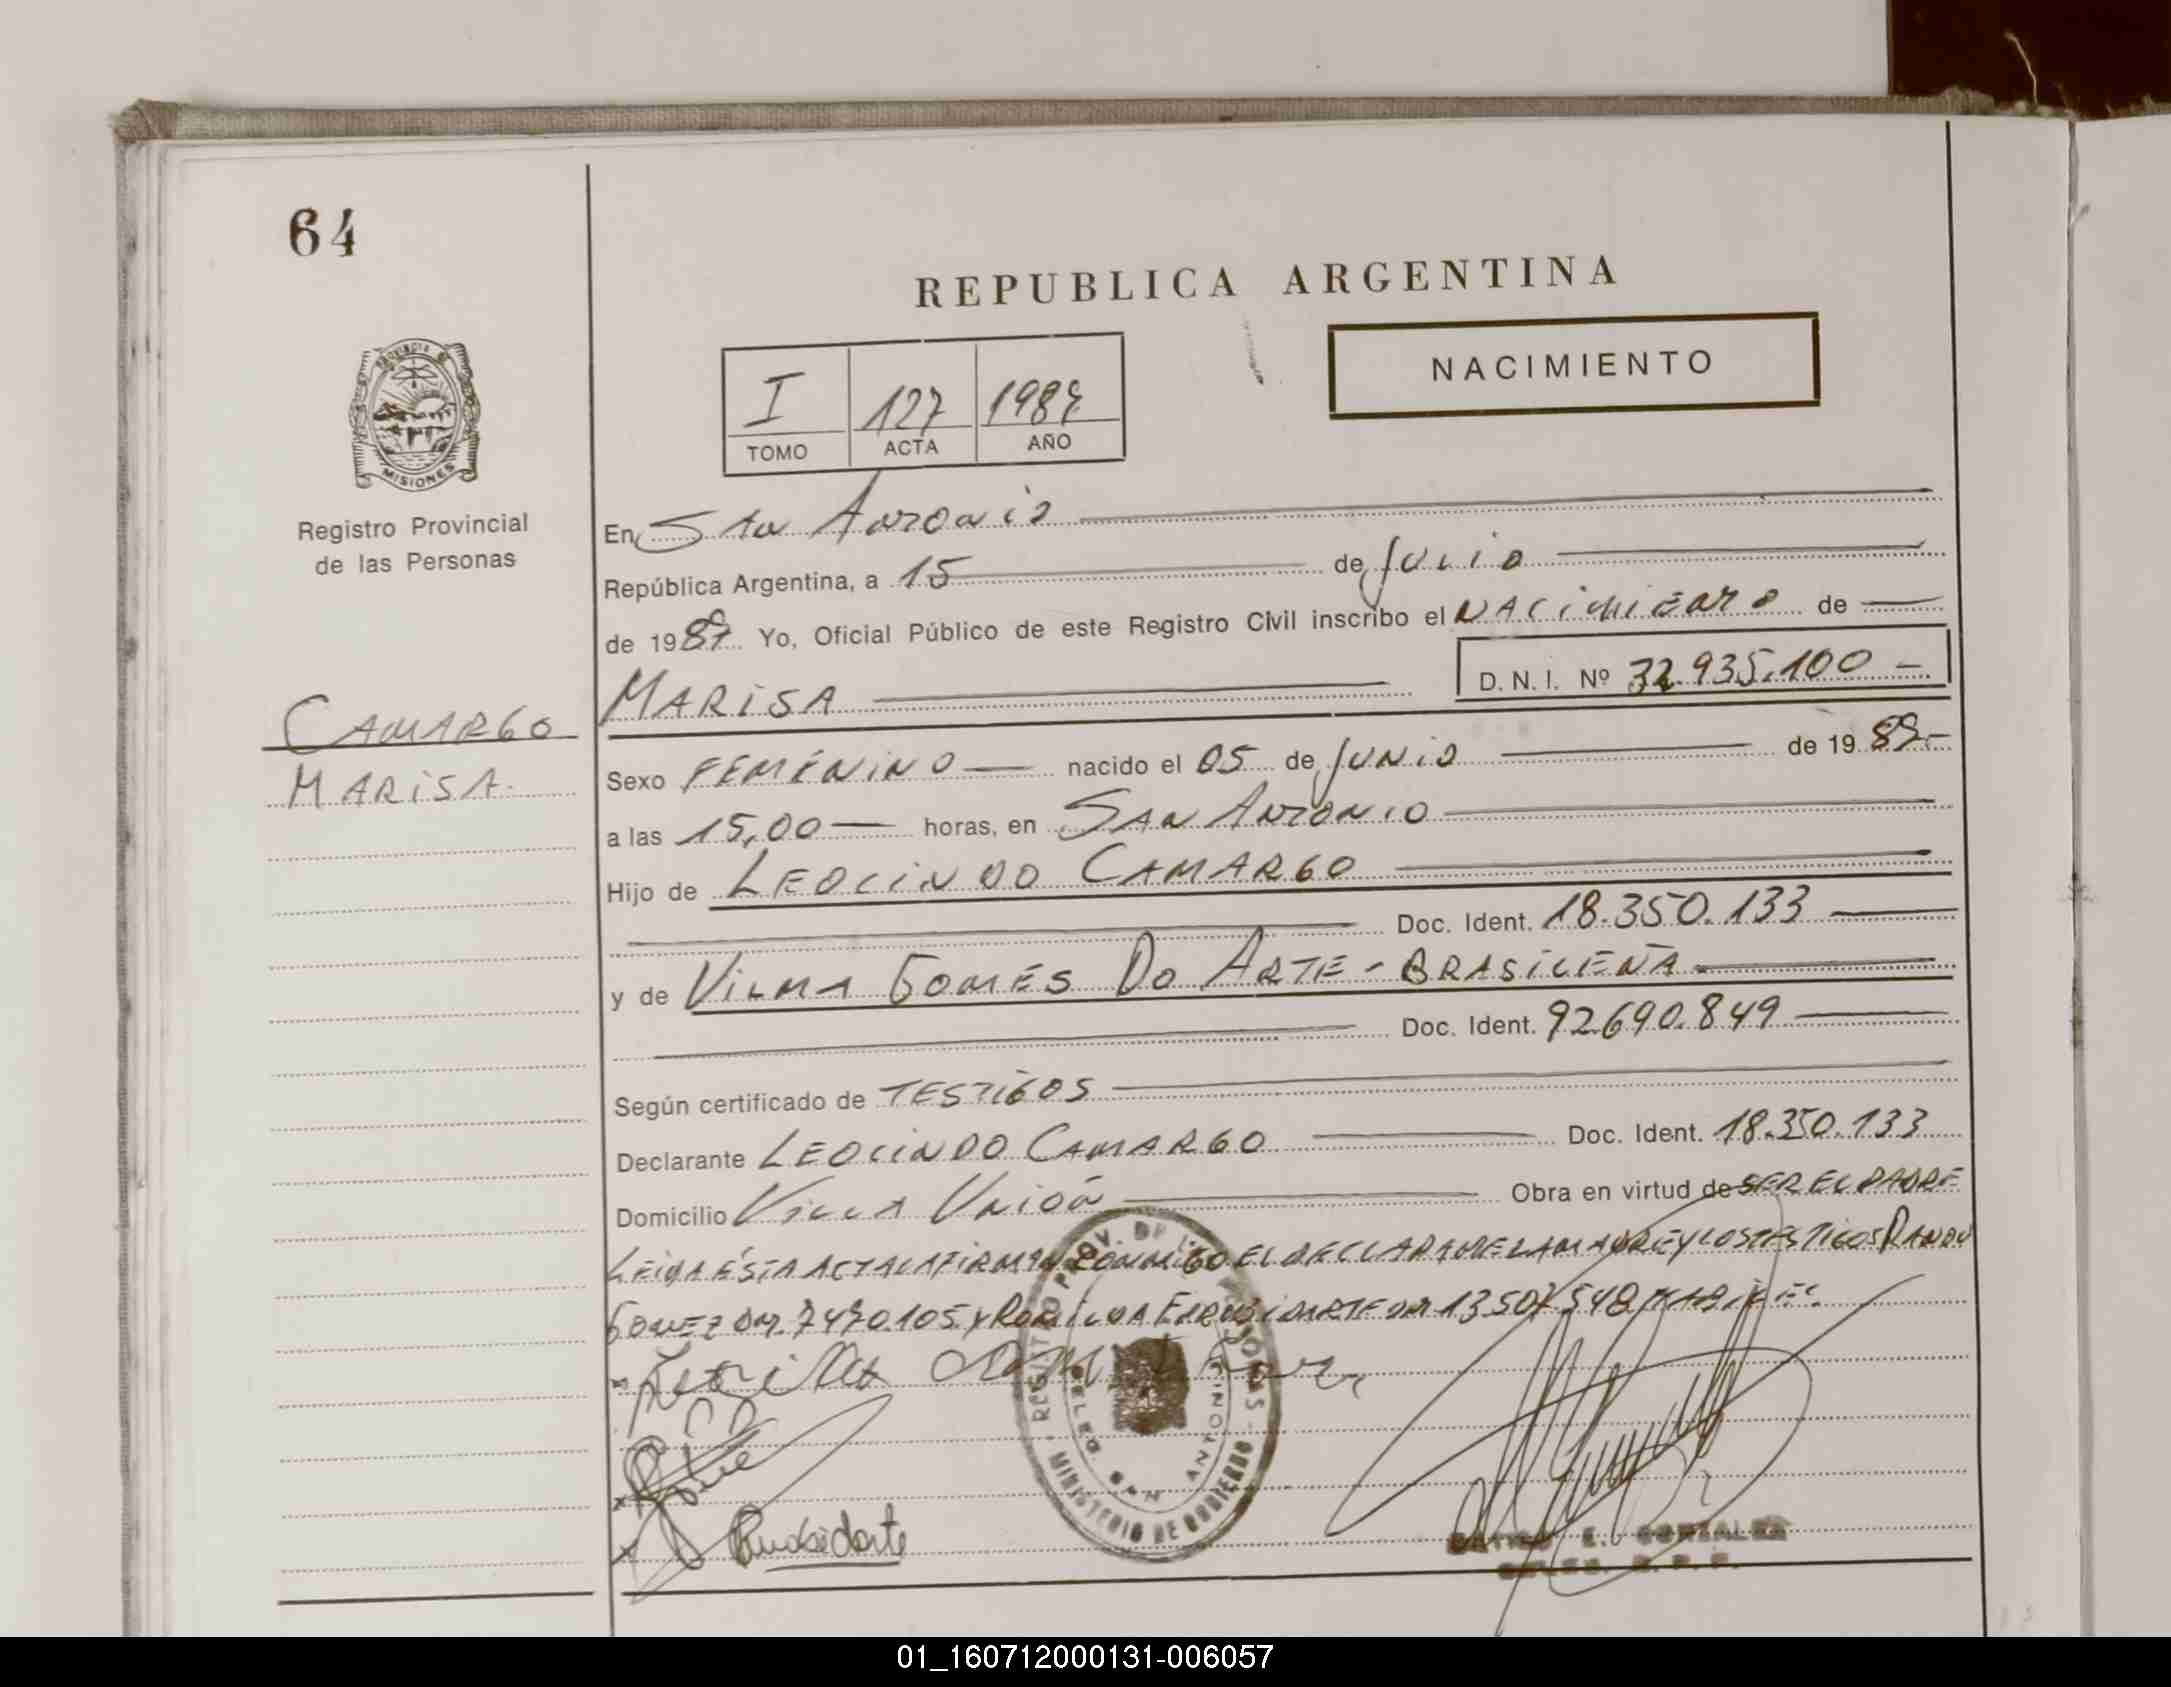 64
REPUBLICA ARGENTINA
NACIMIENTO
I 127
TOMO ACTA AÑO
PROVINCIA DE
MISIONES
Registro Provincial
de las Personas
CAMARGO
MARISA
En SAN ANTONIO
República Argentina, a 15 de JULIO
de 19 Yo, Oficial Público de este Registro Civil inscribo el NACIMIENTO de
MARISA D. N. I. Nº 32.935.100
Sexo FEMENINO nacido el 05 de JUNIO de 19
a las 15,00 horas, en SAN ANTONIO
Hijo de LEOCINDO CAMARGO
Doc. Ident. 18.350.133
y de VILMA GOMES DO ARTE - BRASILEÑA
Doc. Ident. 92.690.849
Según certificado de TESTIGOS
Declarante LEOCINDO CAMARGO Doc. Ident. 18.350.133
Domicilio VILLA UNIÓN Obra en virtud de SER EL PADRE
LEIDA ÉSTA ACTA LA FIRMAN CONMIGO EL DECLARANTE LA MADRE Y LOS TESTIGOS
GOMEZ 7470.105 Y
REGISTRO PROV. DE LAS PERSONAS
MINISTERIO DE GOBIERNO
DELEG. SAN ANTONIO
E. GONZALEZ
01_160712000131-006057